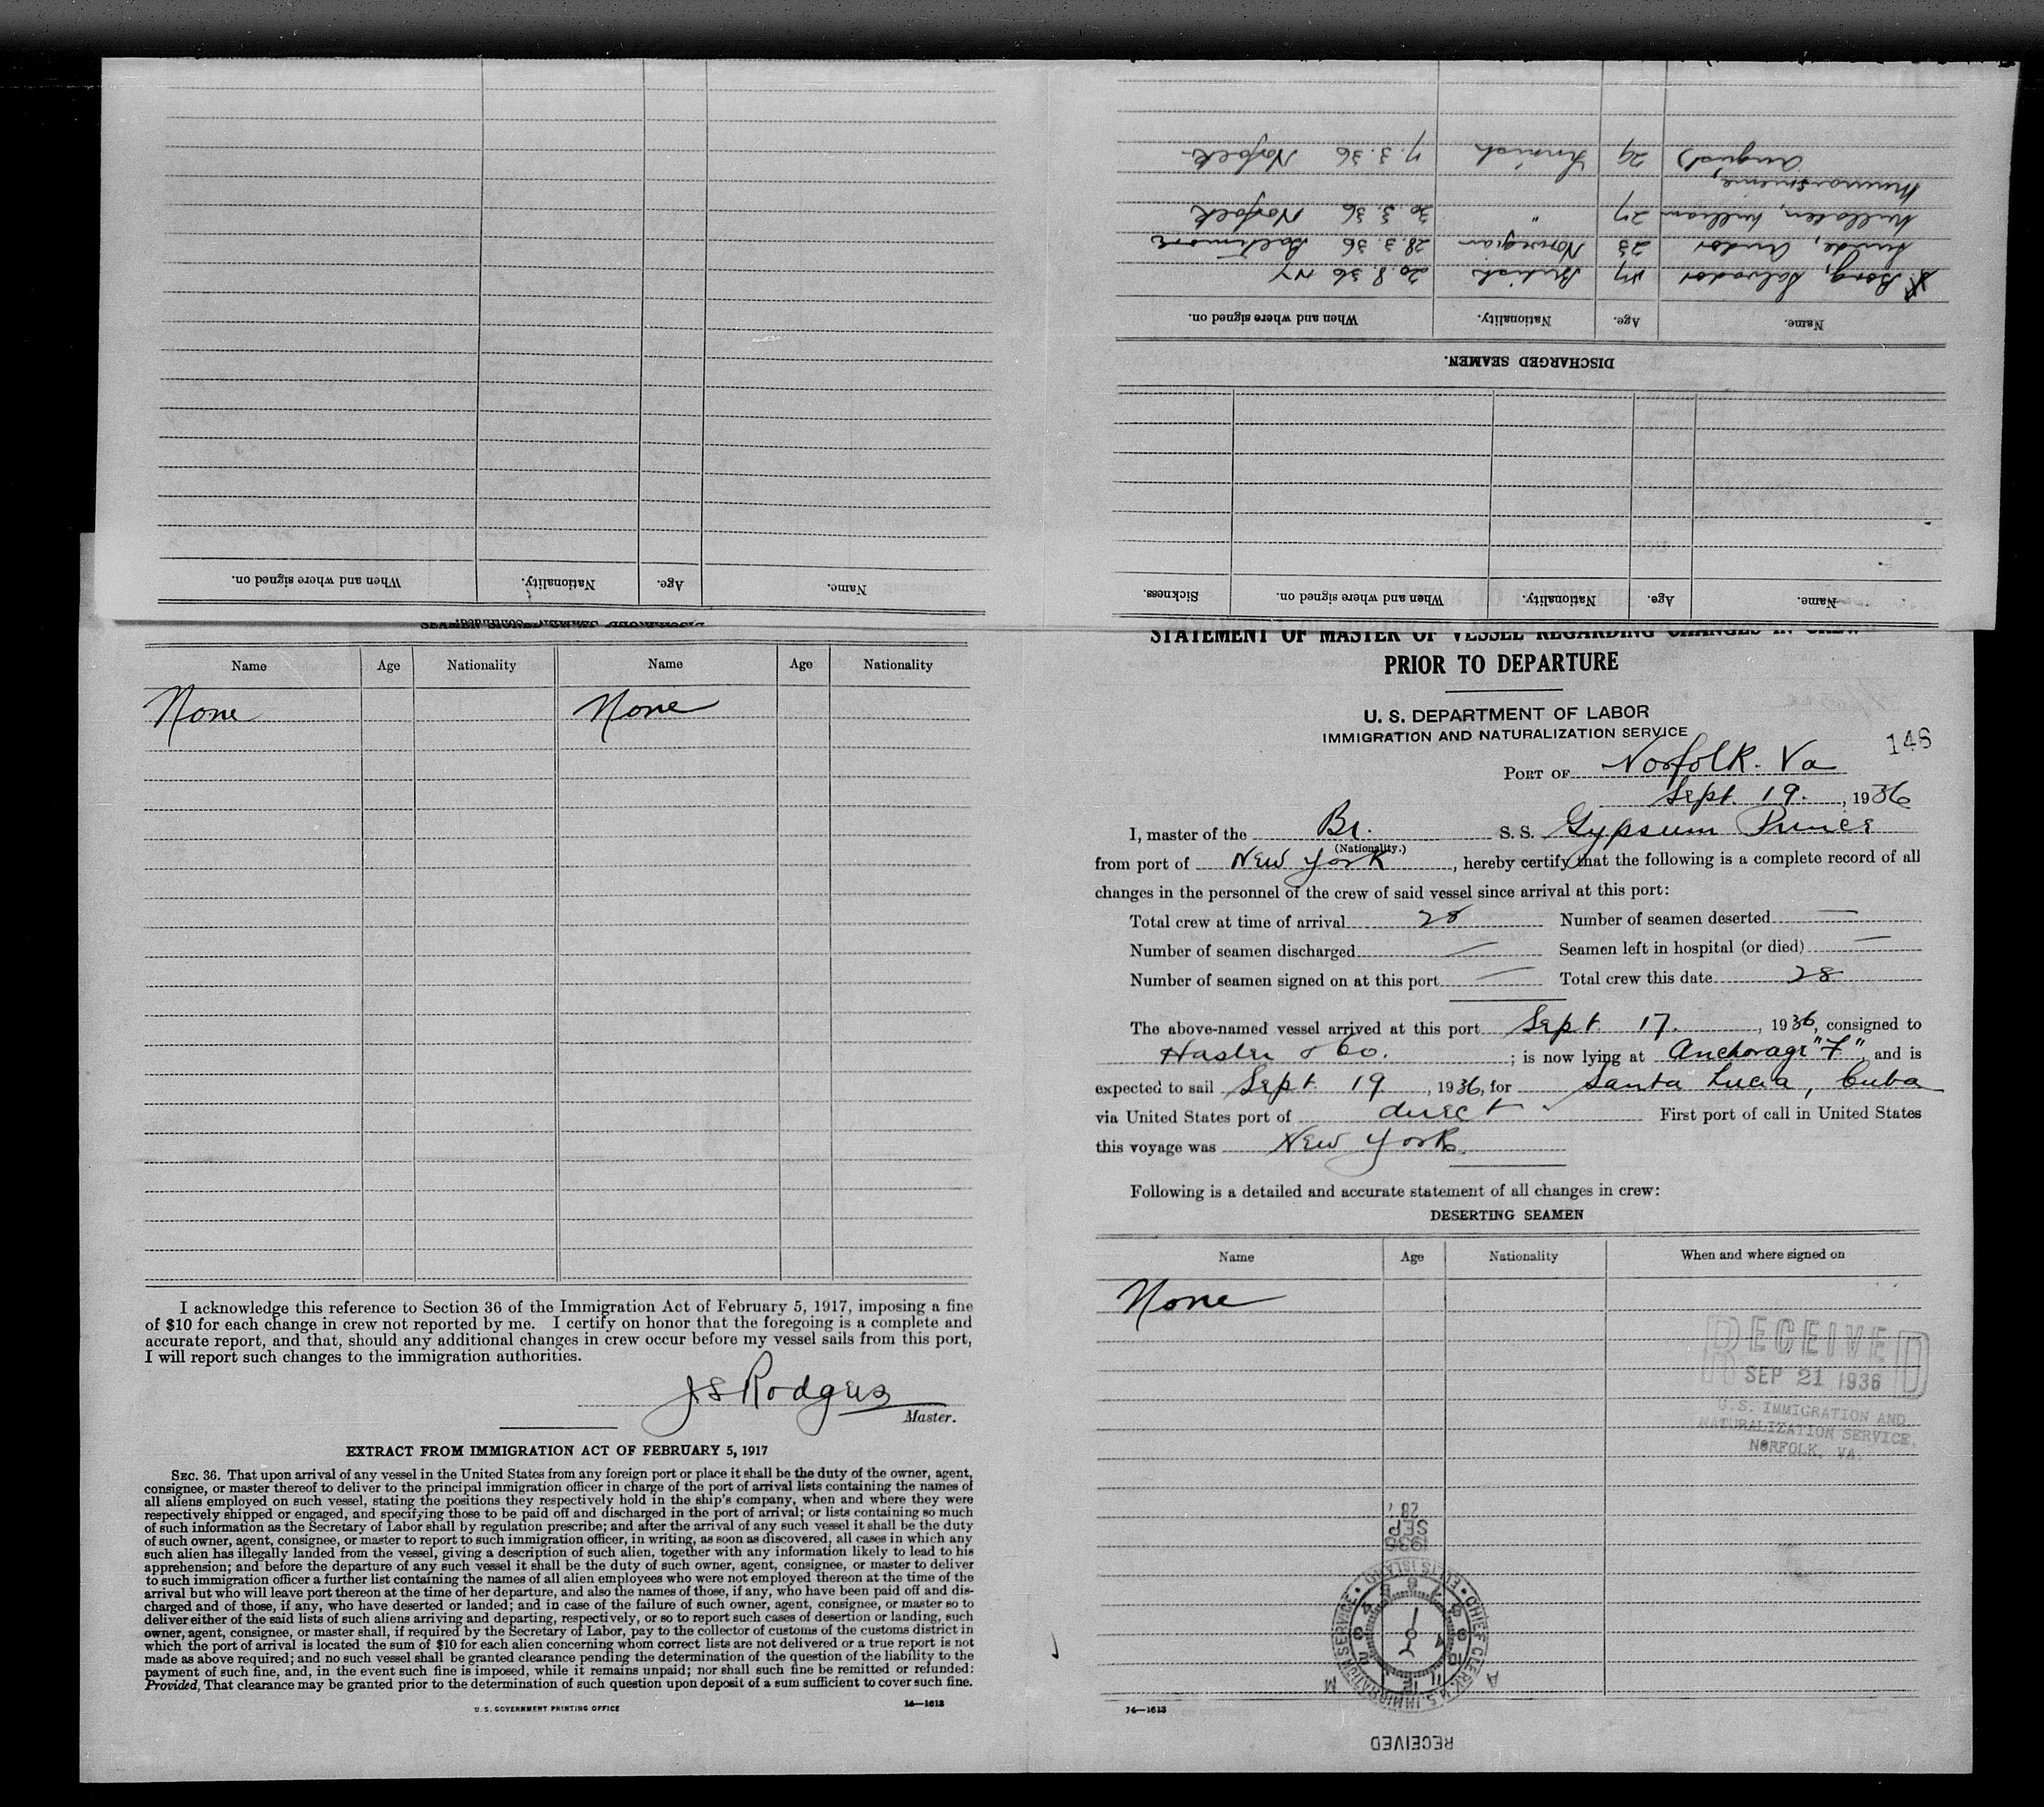 Name. Age. Nationality. When and where signed on. Sickness.
DISCHARGED SEAMEN.
Name. Age. Nationality. When and where signed on.
Borg, Salvador British 20.8.36 NY
Andor 23 Norwegian 28.3.36 Baltimore
William 27 " 30.3.36 Norfolk
August 29 Finnish 7.3.36 Norfolk
Name. Age. Nationality. When and where signed on.
Name Age Nationality Name Age Nationality
None None
I acknowledge this reference to Section 36 of the Immigration Act of February 5, 1917, imposing a fine
of $10 for each change in crew not reported by me. I certify on honor that the foregoing is a complete and
accurate report, and that, should any additional changes in crew occur before my vessel sails from this port,
I will report such changes to the immigration authorities.
J S Rodgers
Master.
EXTRACT FROM IMMIGRATION ACT OF FEBRUARY 5, 1917
SEC. 36. That upon arrival of any vessel in the United States from any foreign port or place it shall be the duty of the owner, agent,
consignee, or master thereof to deliver to the principal immigration officer in charge of the port of arrival lists containing the names of
all aliens employed on such vessel, stating the positions they respectively hold in the ship's company, when and where they were
respectively shipped or engaged, and specifying those to be paid off and discharged in the port of arrival; or lists containing so much
of such information as the Secretary of Labor shall by regulation prescribe; and after the arrival of any such vessel it shall be the duty
of such owner, agent, consignee, or master to report to such immigration officer, in writing, as soon as discovered, all cases in which any
such alien has illegally landed from the vessel, giving a description of such alien, together with any information likely to lead to his
apprehension; and before the departure of any such vessel it shall be the duty of such owner, agent, consignee, or master to deliver
to such immigration officer a further list containing the names of all alien employees who were not employed thereon at the time of the
arrival but who will leave port thereon at the time of her departure, and also the names of those, if any, who have been paid off and dis-
charged and of those, if any, who have deserted or landed; and in case of the failure of such owner, agent, consignee, or master so to
deliver either of the said lists of such aliens arriving and departing, respectively, or so to report such cases of desertion or landing, such
owner, agent, consignee, or master shall, if required by the Secretary of Labor, pay to the collector of customs of the customs district in
which the port of arrival is located the sum of $10 for each alien concerning whom correct lists are not delivered or a true report is not
made as above required; and no such vessel shall be granted clearance pending the determination of the question of the liability to the
payment of such fine, and, in the event such fine is imposed, while it remains unpaid; nor shall such fine be remitted or refunded:
Provided, That clearance may be granted prior to the determination of such question upon deposit of a sum sufficient to cover such fine.
U. S. GOVERNMENT PRINTING OFFICE 14—1613
STATEMENT OF MASTER OF VESSEL REGARDING CHANGES IN CREW
PRIOR TO DEPARTURE
U. S. DEPARTMENT OF LABOR
IMMIGRATION AND NATURALIZATION SERVICE
146
PORT OF Norfolk. Va
Sept. 19. , 1936
I, master of the Br. S. S. Gypsum Prince
(Nationality.)
from port of New York , hereby certify that the following is a complete record of all
changes in the personnel of the crew of said vessel since arrival at this port:
Total crew at time of arrival 28 Number of seamen deserted —
Number of seamen discharged — Seamen left in hospital (or died) —
Number of seamen signed on at this port — Total crew this date 28
The above-named vessel arrived at this port Sept. 17. , 1936, consigned to
Hasler & Co. ; is now lying at Anchorage "F" and is
expected to sail Sept. 19 , 1936, for Santa Lucia, Cuba
via United States port of direct ✓ First port of call in United States
this voyage was New York.
Following is a detailed and accurate statement of all changes in crew:
DESERTING SEAMEN
Name Age Nationality When and where signed on
None
RECEIVED
SEP 21 1936
U.S. IMMIGRATION AND
NATURALIZATION SERVICE.
NORFOLK, VA.
1936
SEP
28
CHIEF CLERK U.S. IMMIGRATION SERVICE • ELLIS ISLAND •
A M
14—1613
RECEIVED